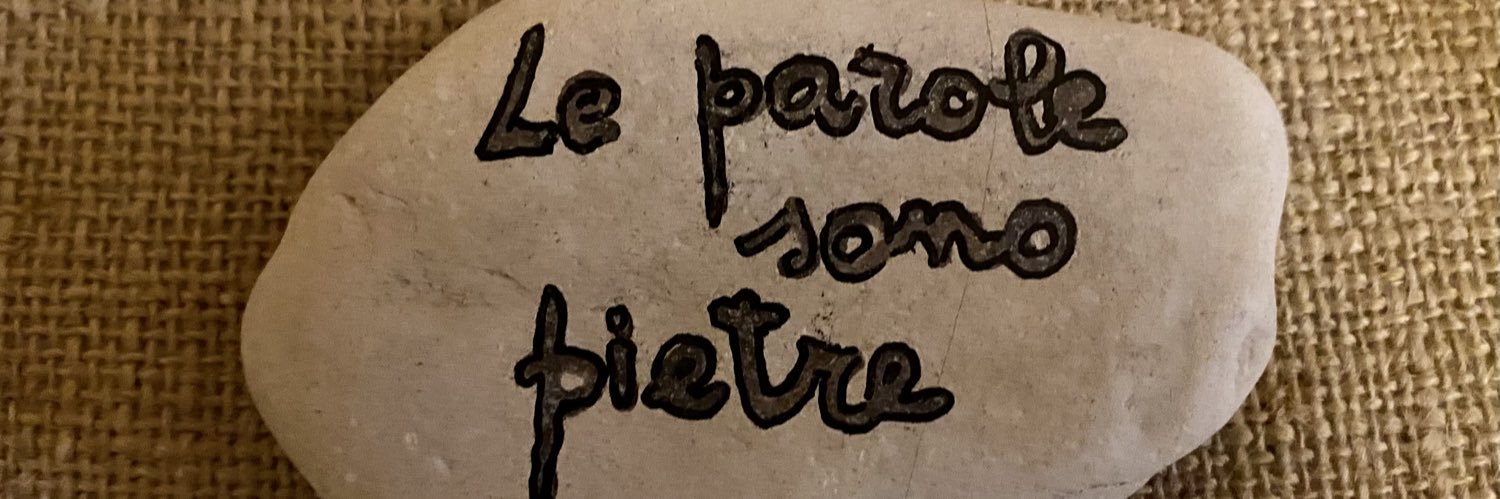 Le parole
sono
pietre